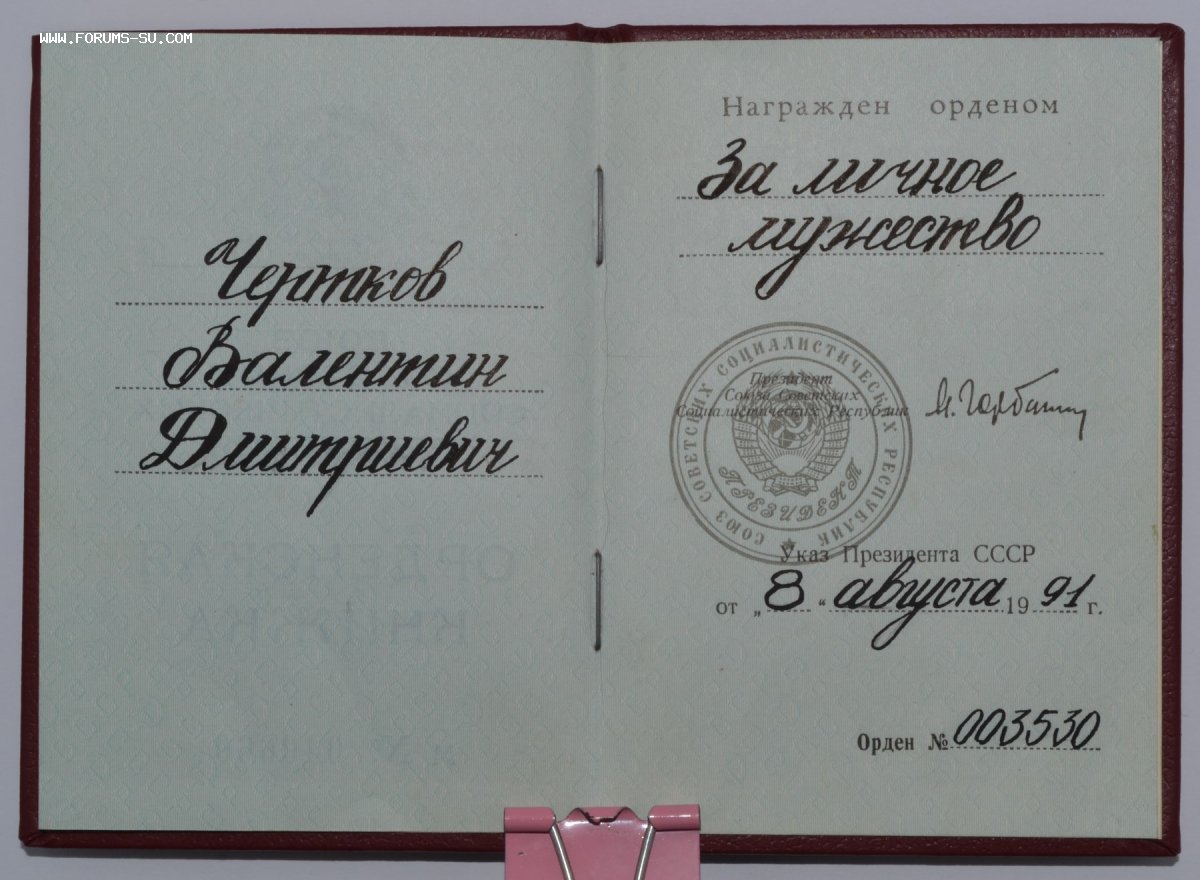 WWW.FORUMS-SU.COM
Чертков
Валентин
Дмитриевич
Награжден орденом
За личное
мужество
СОЮЗ СОВЕТСКИХ СОЦИАЛИСТИЧЕСКИХ РЕСПУБЛИК
Президент
Союза Советских
Социалистических Республик
М. Горбачев
ПРЕЗИДЕНТ
Указ Президента СССР
от „8“ августа 1991 г.
Орден № 003530